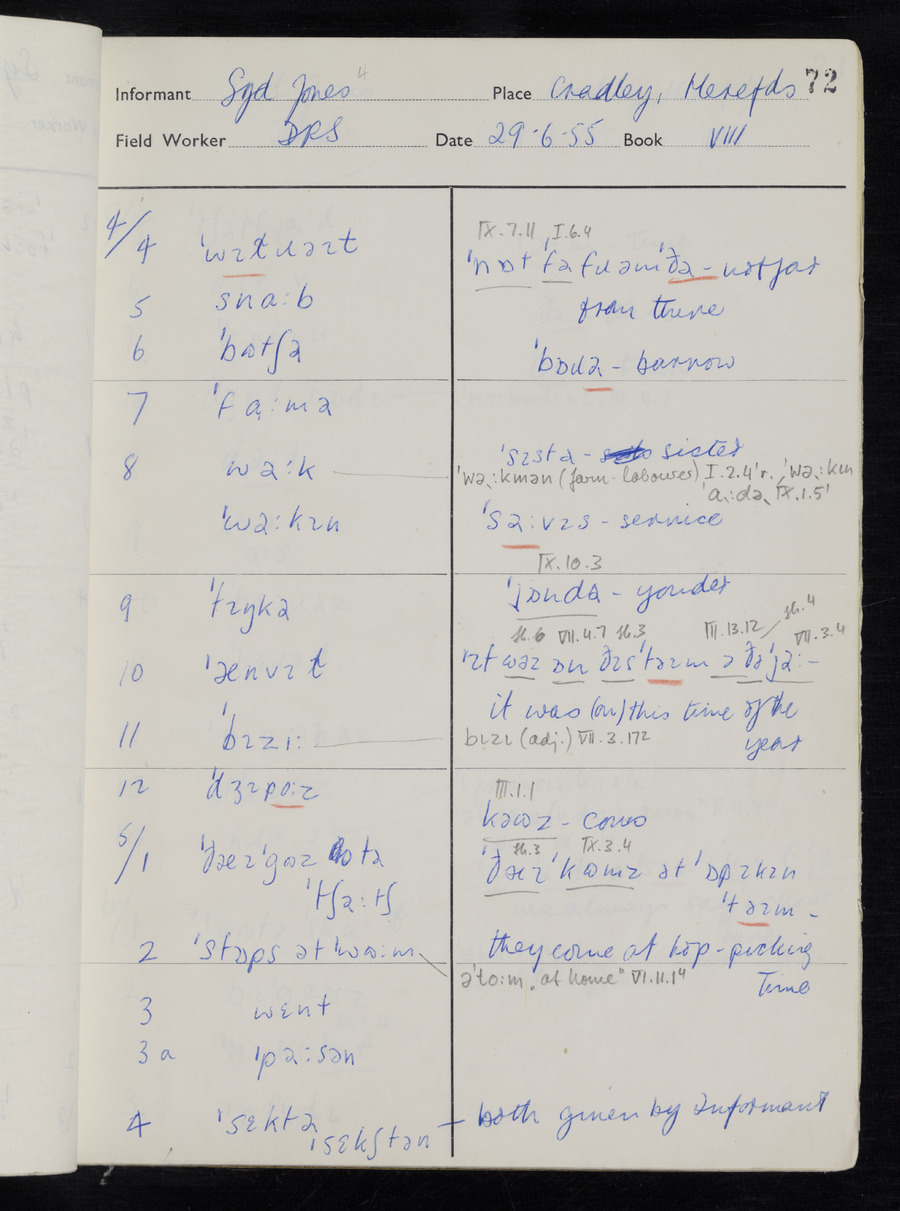 Informant Syd Jones 4 Place Cradley, Herefds 72
Field Worker DRS Date 29-6-55 Book VIII
4/4 ˈwɪtɹəɪt
5 snaːb
6 ˈbʊtʃə
7 ˈfɑːmə
8 wəːk
ˈwəːkɪn
9 ˈtɪŋkə
10 ˈəɛnvɪt
11 ˈbɪziː
12 ˈdʒɪpoːz
5/1 ˈðaeɪ ˈgʊz tə
ˈtʃəːtʃ
2 ˈstɒps ət ˈwoːm
3 wɛnt
3a ˈpaːsən
4 ˈsɛktə
ˈsɛkʃtən
IX.7.11 I.6.4
ˈnɒt ˈfa fɹəm ˈðə - not far
from there
ˈbɒɹə - barrow
ˈsɪstə - sister
ˈwəːkmən (farm-labourer) I.2.4 r. ˈwəːkɪn
ˈaːdə IX.1.5
ˈsəːvɪs - service
IX.10.3
ˈjɒndə - yonder
sh.6 VII.4.7 sh.3 III.13.12 / sh.4 VII.3.4
ˈɪt wəz ɒn ðɪs ˈtəɪm ə ðə ˈjəː -
it was (on) this time of the
year
bɪzɪ (adj.) VII.3.172
III.1.1
kəʊz - cows
sh.3 IX.3.4
ˈðəɪ ˈkʊmz ət ˈɒpɪkɪn
ˈtəɪm -
they come at hop-picking
time
əˈtoːm "at home" VI.11.14
both given by Informant